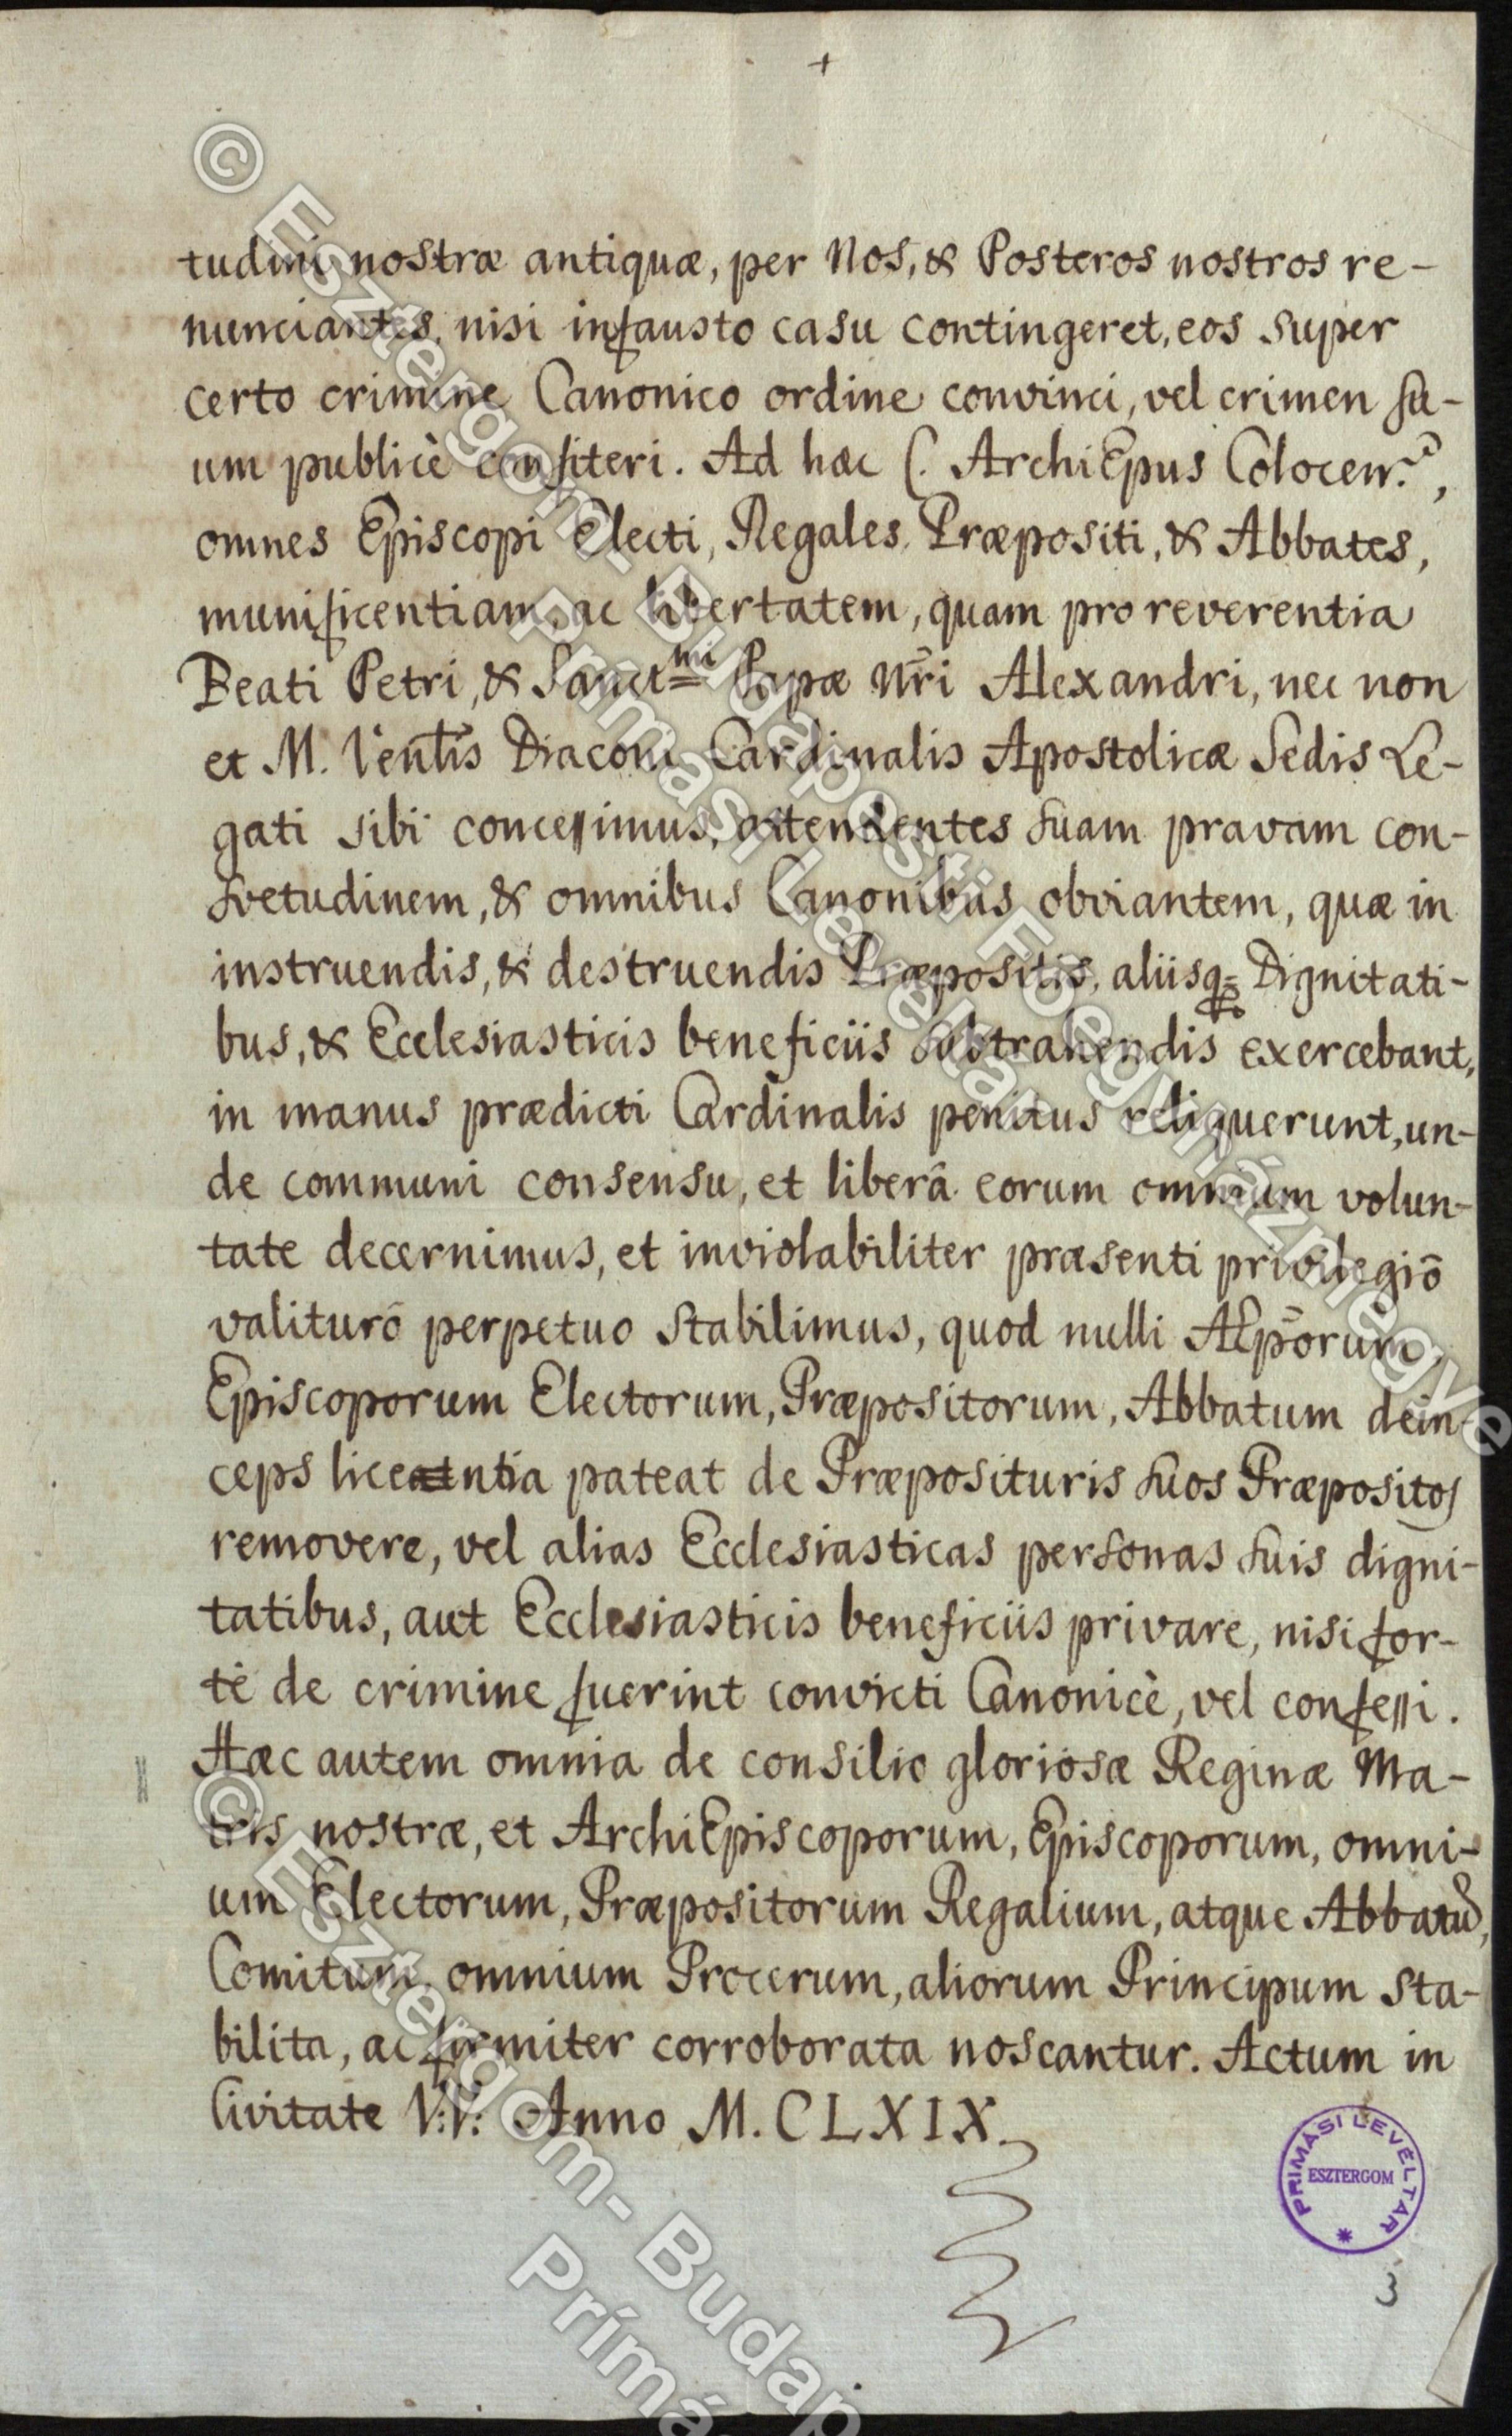 +
tudini nostræ antiquæ, per Nos, & Posteros nostros re-
nunciantes, nisi infausto casu contingeret, eos super
certo crimine Canonico ordine convinci, vel crimen su-
um publicè confiteri. Ad hæc C. ArchiEpus Colocen.,
omnes Episcopi Electi, Regales Præpositi, & Abbates,
munificentiam, ac libertatem, quam pro reverentia
Beati Petri, & Sanctmi Papæ Nri Alexandri, nec non
et M. Diaconi Cardinalis Apostolicæ Sedis Le-
gati sibi concessimus, attendentes suam pravam con-
svetudinem, & omnibus Canonibus obviantem, quæ in
instruendis, & destruendis Præpositis, aliisq= Dignitati-
bus, & Ecclesiasticis beneficiis subtrahendis exercebant,
in manus prædicti Cardinalis penitus reliquerunt, un-
de communi consensu, et liberâ eorum omnium volun-
tate decernimus, et inviolabiliter præsenti privilegiō
valiturō perpetuo stabilimus, quod nulli AEpōrum,
Episcoporum Electorum, Præpositorum, Abbatum dein-
ceps licentia pateat de Præposituris suos Præpositos
removere, vel alias Ecclesiasticas personas suis digni-
tatibus, aut Ecclesiasticis beneficiis privare, nisi for-
tè de crimine fuerint convicti Canonicè, vel confessi.
Hæc autem omnia de consilio gloriosæ Reginæ Ma-
tris nostræ, et ArchiEpiscoporum, Episcoporum, omni-
um Electorum, Præpositorum Regalium, atque Abbatū,
Comitum, omnium Procerum, aliorum Principum sta-
bilita, ac firmiter corroborata noscantur. Actum in
Civitate V:V: Anno M.CLXIX.
PRIMÁSI LEVÉLTÁR
ESZTERGOM
3
© Esztergom-Budapesti Főegyházmegye
Prímási Levéltár
© Esztergom-Budap
Prímá